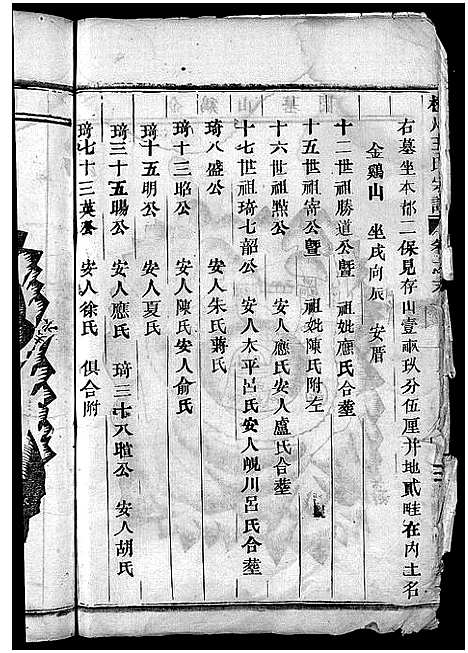 右墓坐本都二保見存山壹畝玖分伍厘并地貳畦在內土名
金鷄山 坐戌向辰 安厝
十二世祖勝道公暨 祖妣應氏合塟
十五世祖寄公暨 祖妣陳氏附左
十六世祖㸃公 安人應氏安人盧氏合塟
十七世祖琦七韶公 安人太平呂氏安人峴川呂氏合塟
琦八盛公 安人朱氏蔣氏
琦十三昭公 安人陳氏安人俞氏
琦十五明公 安人夏氏
琦三十五暘公 安人應氏 琦三十八暄公 安人胡氏
琦七十三英公 安人徐氏 俱合附